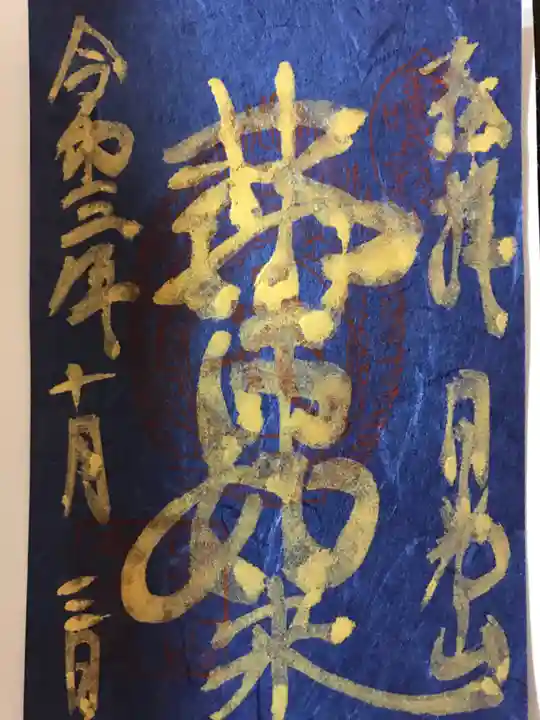 奉拝 月光山
薬師如来
令和三年 十月 三日